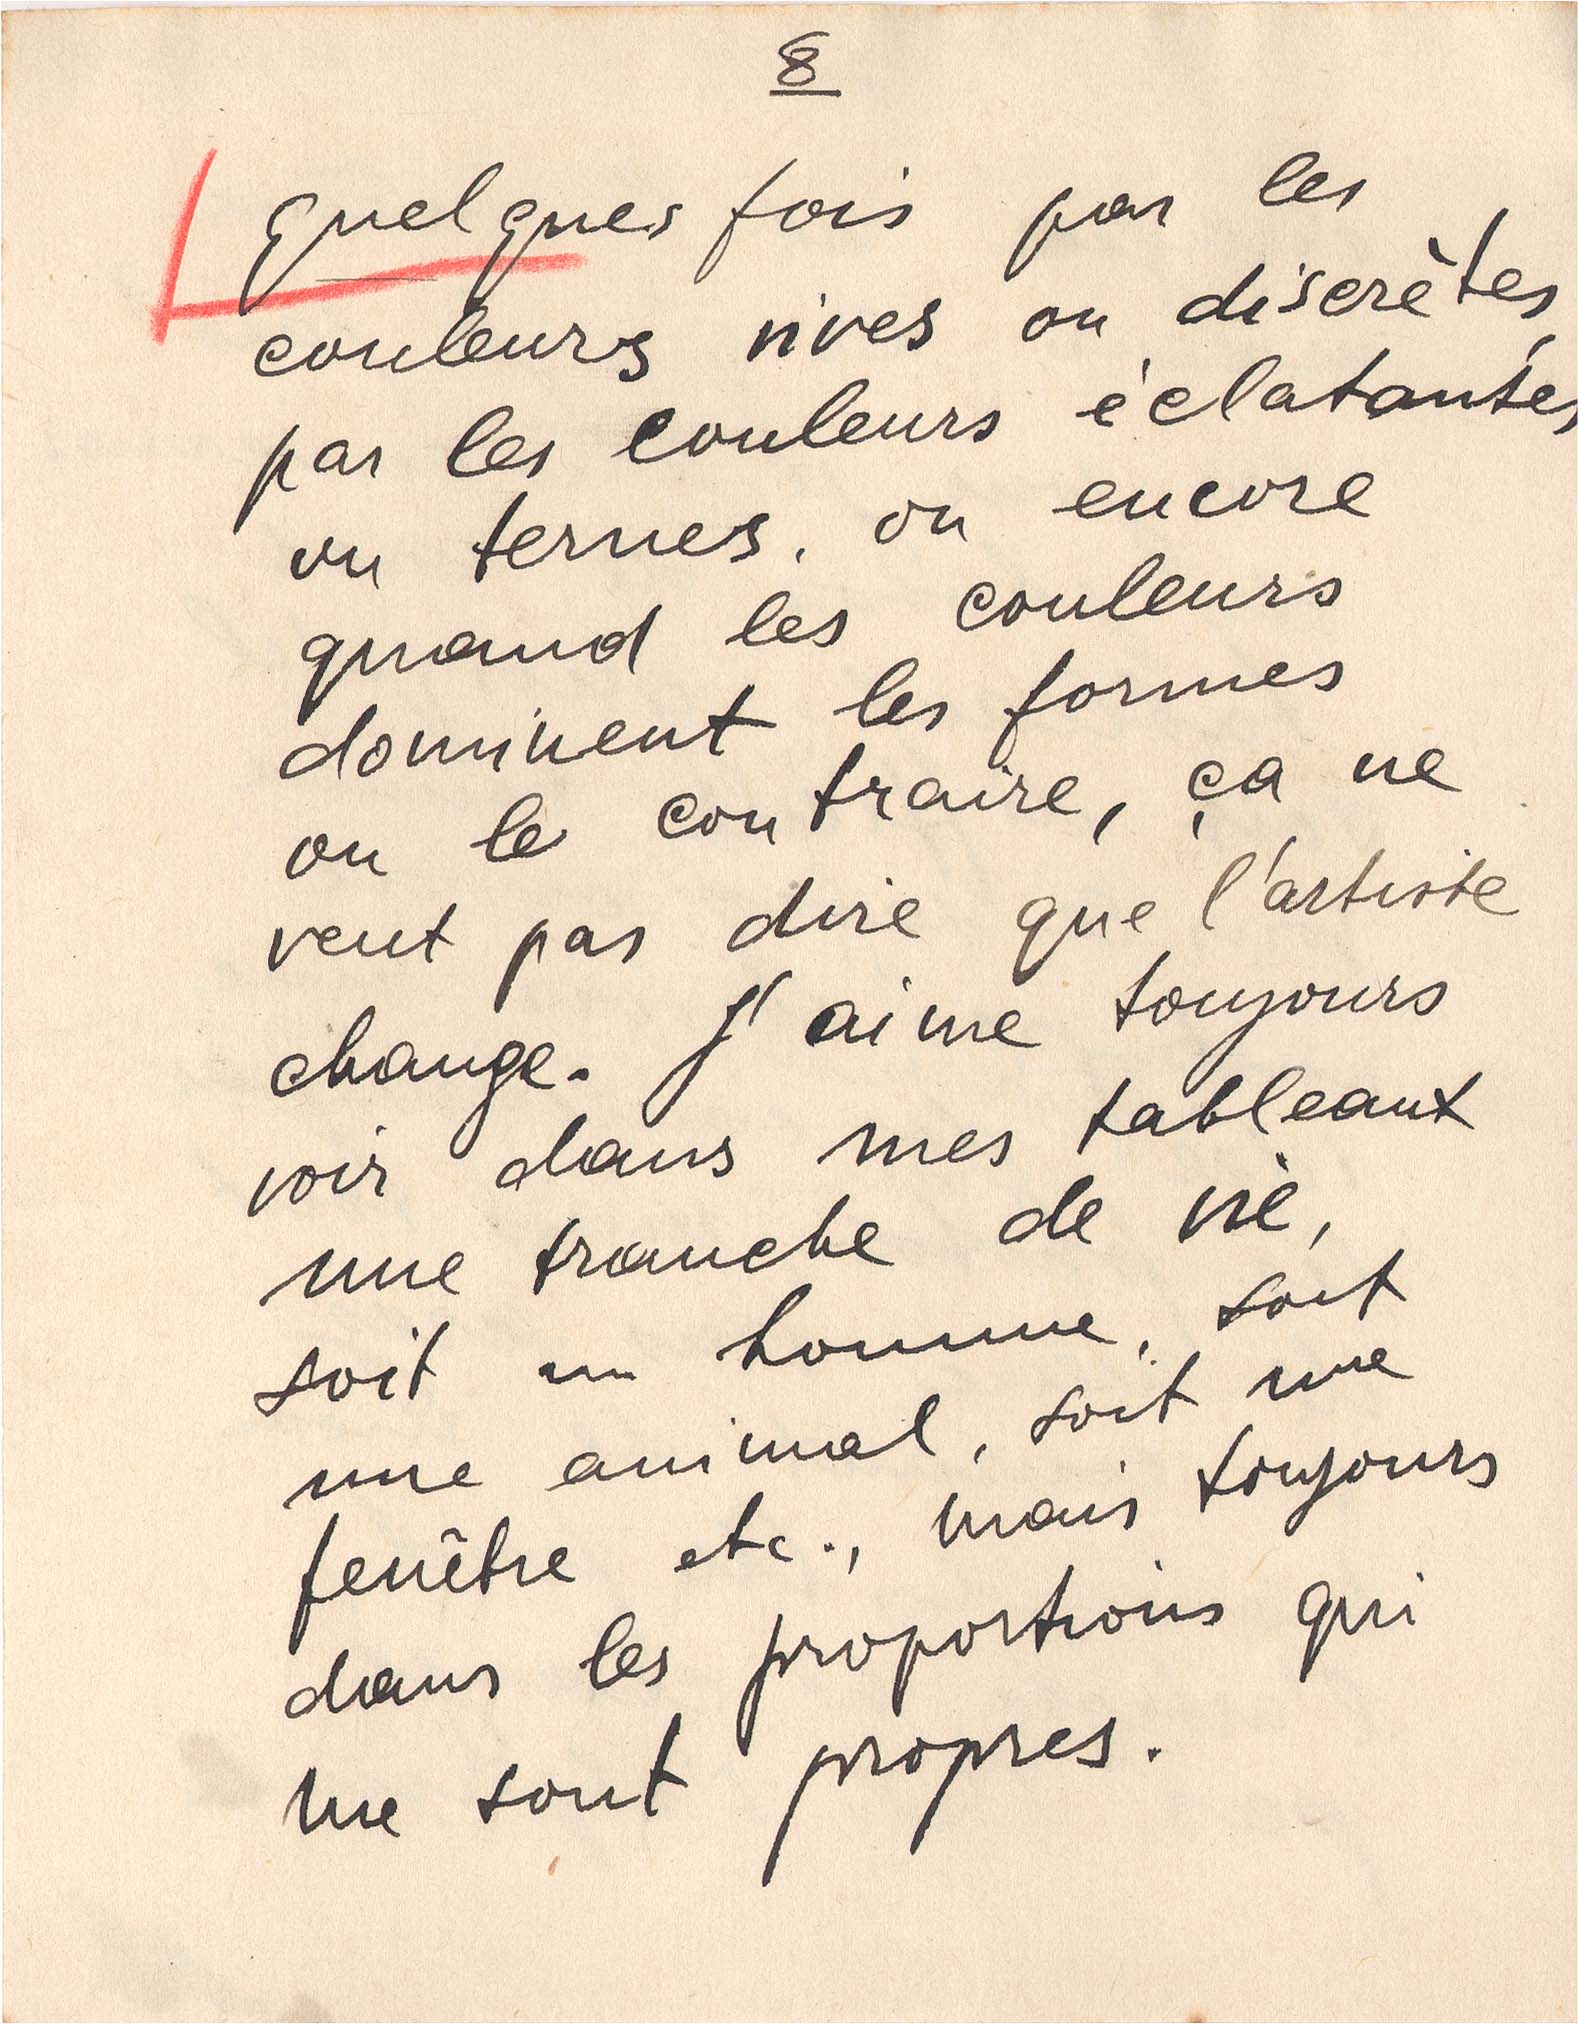 8
quelques fois par les
couleurs vives ou discrètes,
par les couleurs éclatantes
ou ternes, ou encore
quand les couleurs
dominent les formes
ou le contraire, ça ne
veut pas dire que l'artiste
change. J'aime toujours
voir dans mes tableaux
une tranche de vie,
soit un homme, soit
une animal, soit une
fenêtre etc., mais toujours
dans les proportions qui
me sont propres.